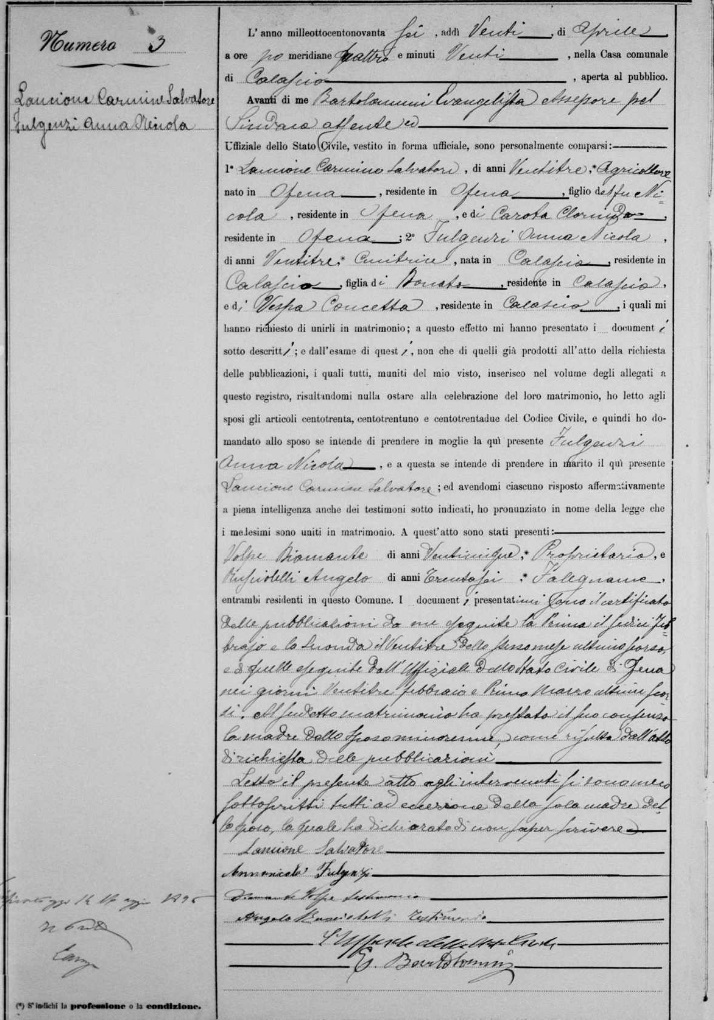 Numero 3
Lancione Carmine Salvatore
Fulgenzi Anna Nicola
L'anno milleottocentonovanta sei, addì Venti, di Aprile
a ore po meridiane quattro e minuti Venti, nella Casa comunale
di Calascio, aperta al pubblico.
Avanti di me Bartolommei Evangelista Assessore pel
Sindaco assente ed
Uffiziale dello Stato Civile, vestito in forma ufficiale, sono personalmente comparsi:
1º Lancione Carmine Salvatore, di anni Ventitre, * Agricoltore
nato in Ofena, residente in Ofena, figlio del fu Ni-
cola, residente in Ofena, e di Carota Clorinda,
residente in Ofena; 2º Fulgenzi Anna Nicola,
di anni Ventitre, * Cucitrice, nata in Calascio, residente in
Calascio, figlia di Donato, residente in Calascio,
e di Vespa Concetta, residente in Calascio, i quali mi
hanno richiesto di unirli in matrimonio; a questo effetto mi hanno presentato i documenti
sotto descritti; e dall'esame di questi, non che di quelli già prodotti all'atto della richiesta
delle pubblicazioni, i quali tutti, muniti del mio visto, inserisco nel volume degli allegati a
questo registro, risultandomi nulla ostare alla celebrazione del loro matrimonio, ho letto agli
sposi gli articoli centotrenta, centotrentuno e centotrentadue del Codice Civile, e quindi ho do-
mandato allo sposo se intende di prendere in moglie la quì presente Fulgenzi
Anna Nicola, e a questa se intende di prendere in marito il quì presente
Lancione Carmine Salvatore; ed avendomi ciascuno risposto affermativamente
a piena intelligenza anche dei testimoni sotto indicati, ho pronunziato in nome della legge che
i medesimi sono uniti in matrimonio. A quest'atto sono stati presenti:
Volpe Diamante di anni Venticinque, * Proprietario, e
Angelo di anni Trentasei * Falegname,
entrambi residenti in questo Comune. I documenti presentatimi sono il certificato
delle pubblicazioni da me eseguite la Prima il sedici Feb-
brajo e la Seconda il Ventitre dello stesso mese ultimo scorso,
e di quelle eseguite dall'Uffiziale dello Stato Civile di Ofena
nei giorni Ventitre febbraio e Primo Marzo ultimi scor-
si. Al sudetto matrimonio ha prestato il suo consenso
la madre dello sposo minorenne, come risulta dall'atto
di richiesta delle pubblicazioni
Letto il presente atto agli intervenuti si sono meco
sottoscritti tutti ad eccezione della sola madre del-
lo sposo, la quale ha dichiarato di non saper scrivere
Lancione Salvatore
Annanicola Fulgenzi
Diamante Volpe testimonio
Angelo testimonio
L'Uffiziale dello Stato Civile
E. Bartolommei
(*) S'indichi la professione o la condizione.